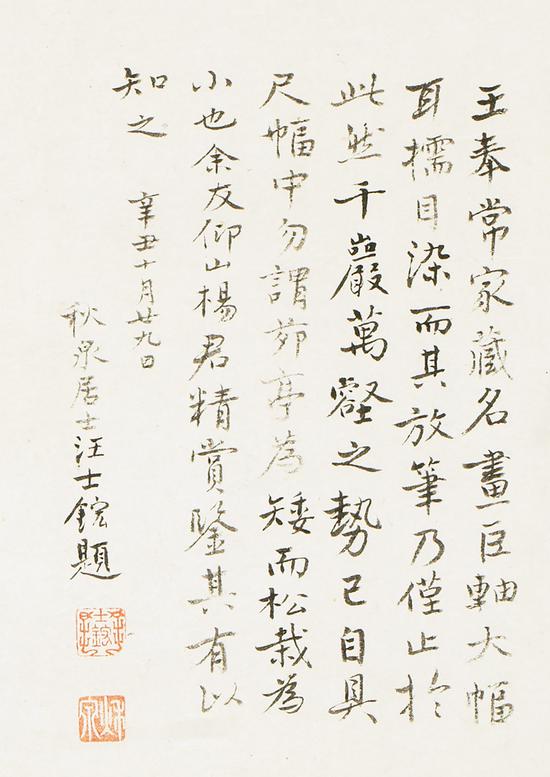 王奉常家藏名畫巨軸大幅
耳擩目染而其放筆乃僅止於
此然千巖萬壑之勢已自具
尺幅中勿謂茆亭為矮而松栽為
小也余友仰山楊君精賞鑒其有以
知之
辛丑十月廿九日
秋泉居士汪士鋐題